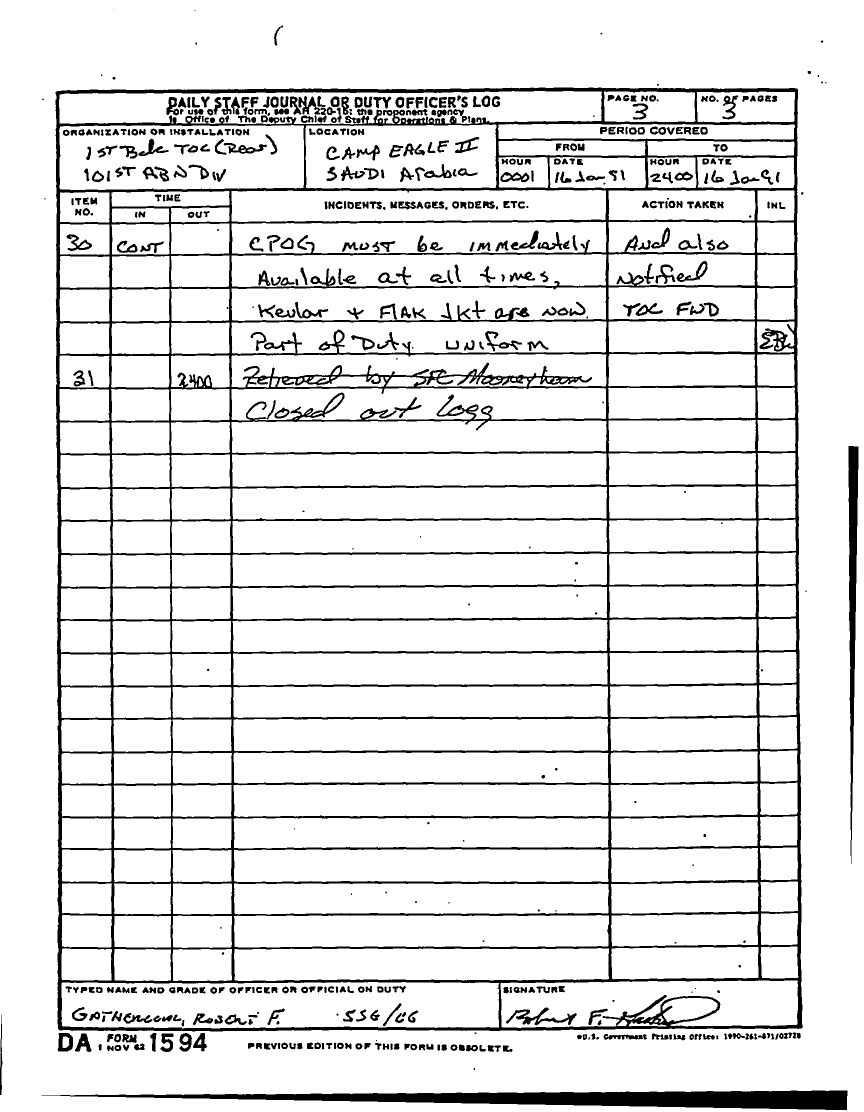 DAILY STAFF JOURNAL OR DUTY OFFICER'S LOG
For use of this form, see AR 220-15; the proponent agency
is Office of The Deputy Chief of Staff for Operations & Plans.
PAGE NO.
3
NO. OF PAGES
3
ORGANIZATION OR INSTALLATION
1ST Bde TOC (Rear)
101ST ABN DIV
LOCATION
CAMP EAGLE II
SAUDI Arabia
PERIOD COVERED
FROM
TO
HOUR
0001
DATE
16 Jan 91
HOUR
2400
DATE
16 Jan 91
ITEM NO.
TIME
IN
OUT
INCIDENTS, MESSAGES, ORDERS, ETC.
ACTION TAKEN
INL
30 CONT CPOG must be immediately And also
Available at all times, Notified
Kevlar + FlAK Jkt are now TOC FWD
Part of Duty uniform
31 2400 Retreved by SFC
Closed out Logg
TYPED NAME AND GRADE OF OFFICER OR OFFICIAL ON DUTY
Robert F. SSG/E6
SIGNATURE
Robert F.
DA FORM 1594
1 NOV 62
PREVIOUS EDITION OF THIS FORM IS OBSOLETE.
*U.S. Government Printing Office: 1990-261-871/02728